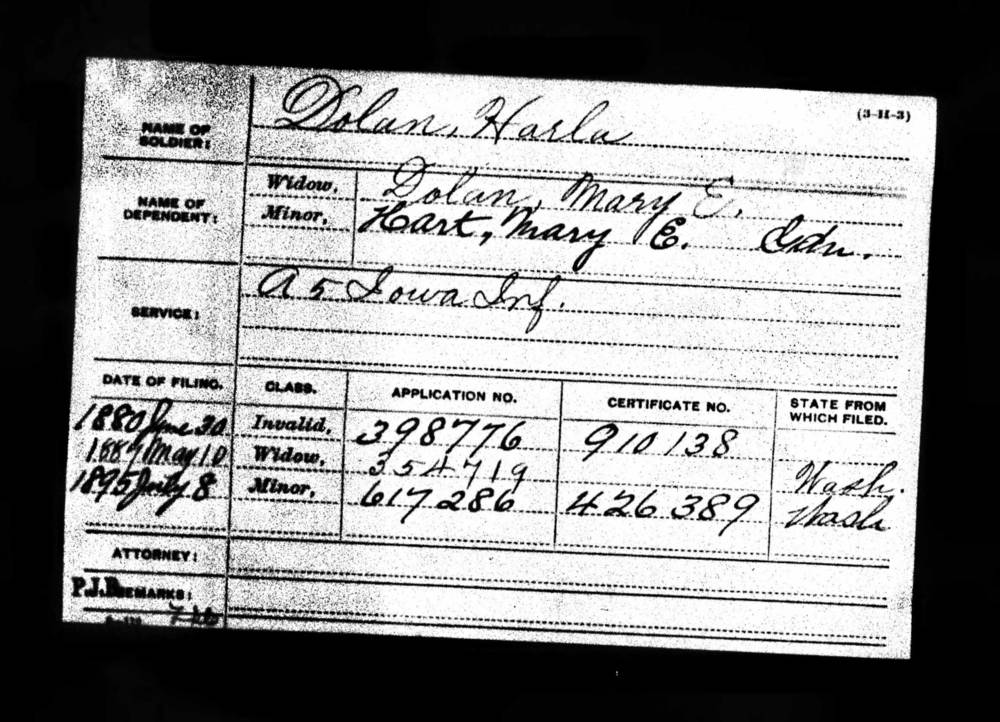 (3-H-3)
NAME OF SOLDIER: Dolan, Harla
NAME OF DEPENDENT:
Widow, Dolan, Mary E.
Minor, Hart, Mary E. Gdn.
SERVICE: A 5 Iowa Inf.
DATE OF FILING. CLASS. APPLICATION NO. CERTIFICATE NO. STATE FROM WHICH FILED.
1880 June 30 Invalid, 398776 910138
1887 May 10 Widow, 354719 Wash.
1895 July 8 Minor, 617286 426389 Wash
ATTORNEY:
REMARKS: